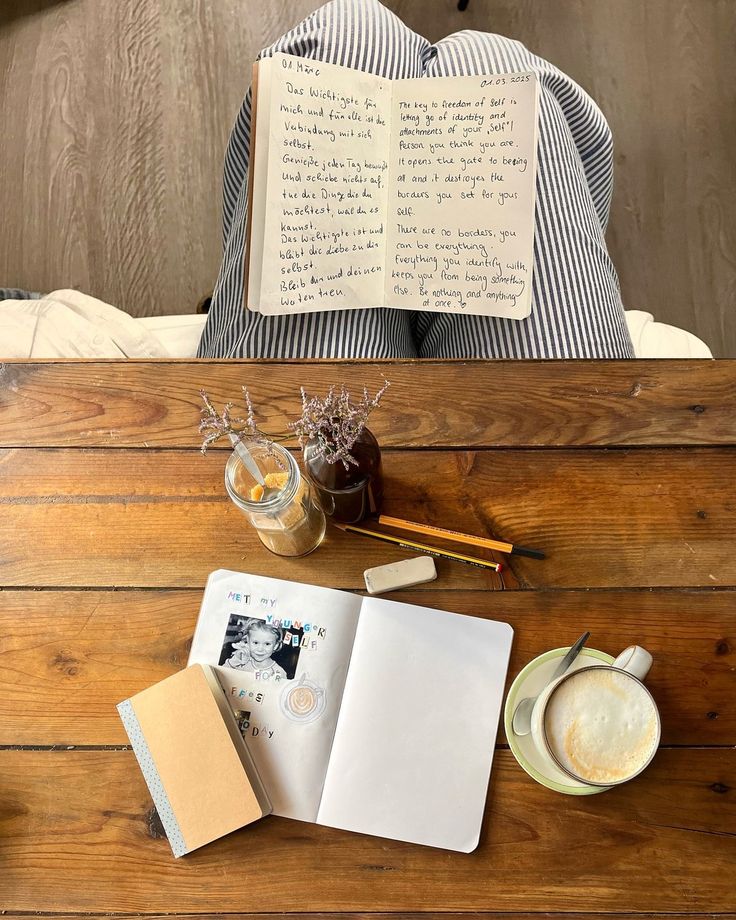 01. März
Das Wichtigste für
mich und für alle ist die
Verbindung mit sich
selbst.
Genieße jeden Tag bewußt
und schiebe nichts auf,
tue die Dinge die du
möchtest, weil du es
kannst.
Das Wichtigste ist und
bleibt die Liebe zu dir
selbst.
Bleib dir und deinen
Worten treu.
01.03.2025
The key to freedom of self is
letting go of identity and
attachments of your "Self"/
Person you think you are.
It opens the gate to being
all and it destroyes the
borders you set for your
self.
There are no borders, you
can be everything.
Everything you identify with,
keeps you from being something
else. Be nothing and anything
at once.
MET my
YOUNGER
SELF
FOR
FFEE
ODAY